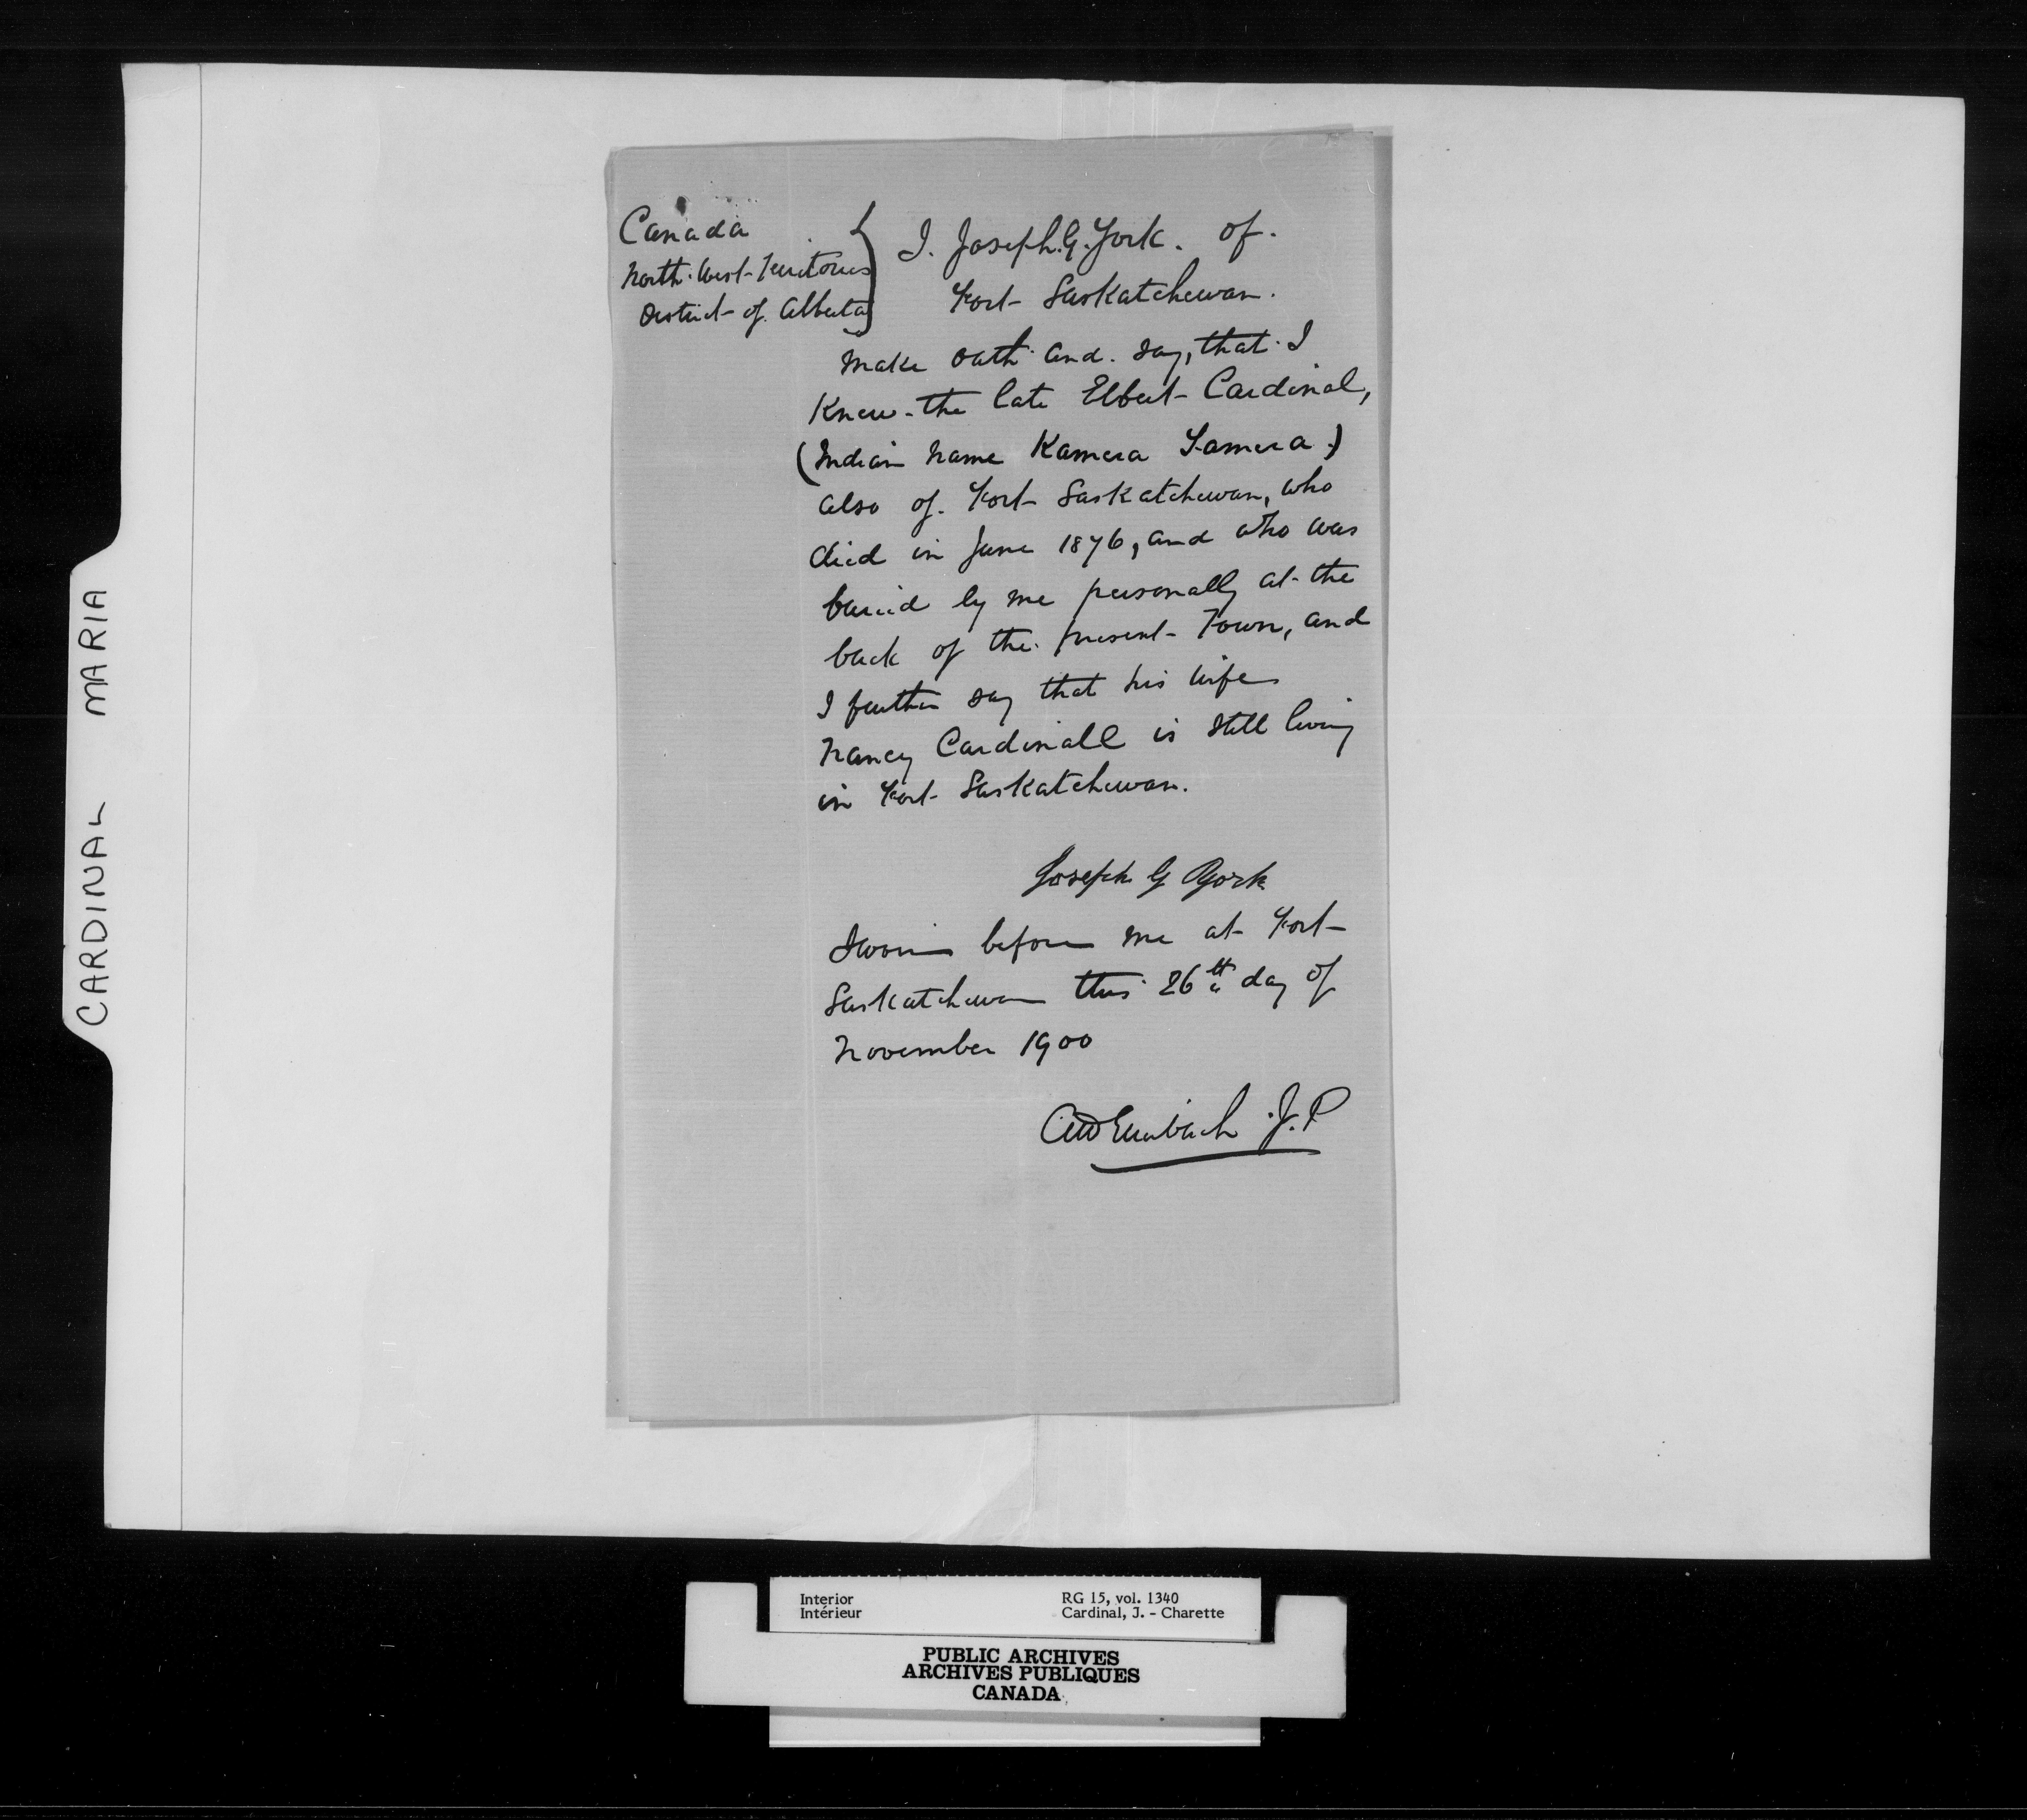 CARDINAL MARIA
Canada
North West Territories
District of Alberta
I. Joseph. G. York. of.
Fort Saskatchewan.
make oath and say, that I
Knew the late Elbert Cardinal,
(Indian name Kamera Yamera)
also of Fort Saskatchewan, who
died in June 1876, and who was
buried by me personally at the
back of the present Town, and
I further say that his wife
Nancy Cardinall is still living
in Fort Saskatchewan.
Joseph G York
Sworn before me at Fort
Saskatchewan this 26th day of
November 1900
J.P
Interior
Intérieur
RG 15, vol. 1340
Cardinal, J. - Charette
PUBLIC ARCHIVES
ARCHIVES PUBLIQUES
CANADA